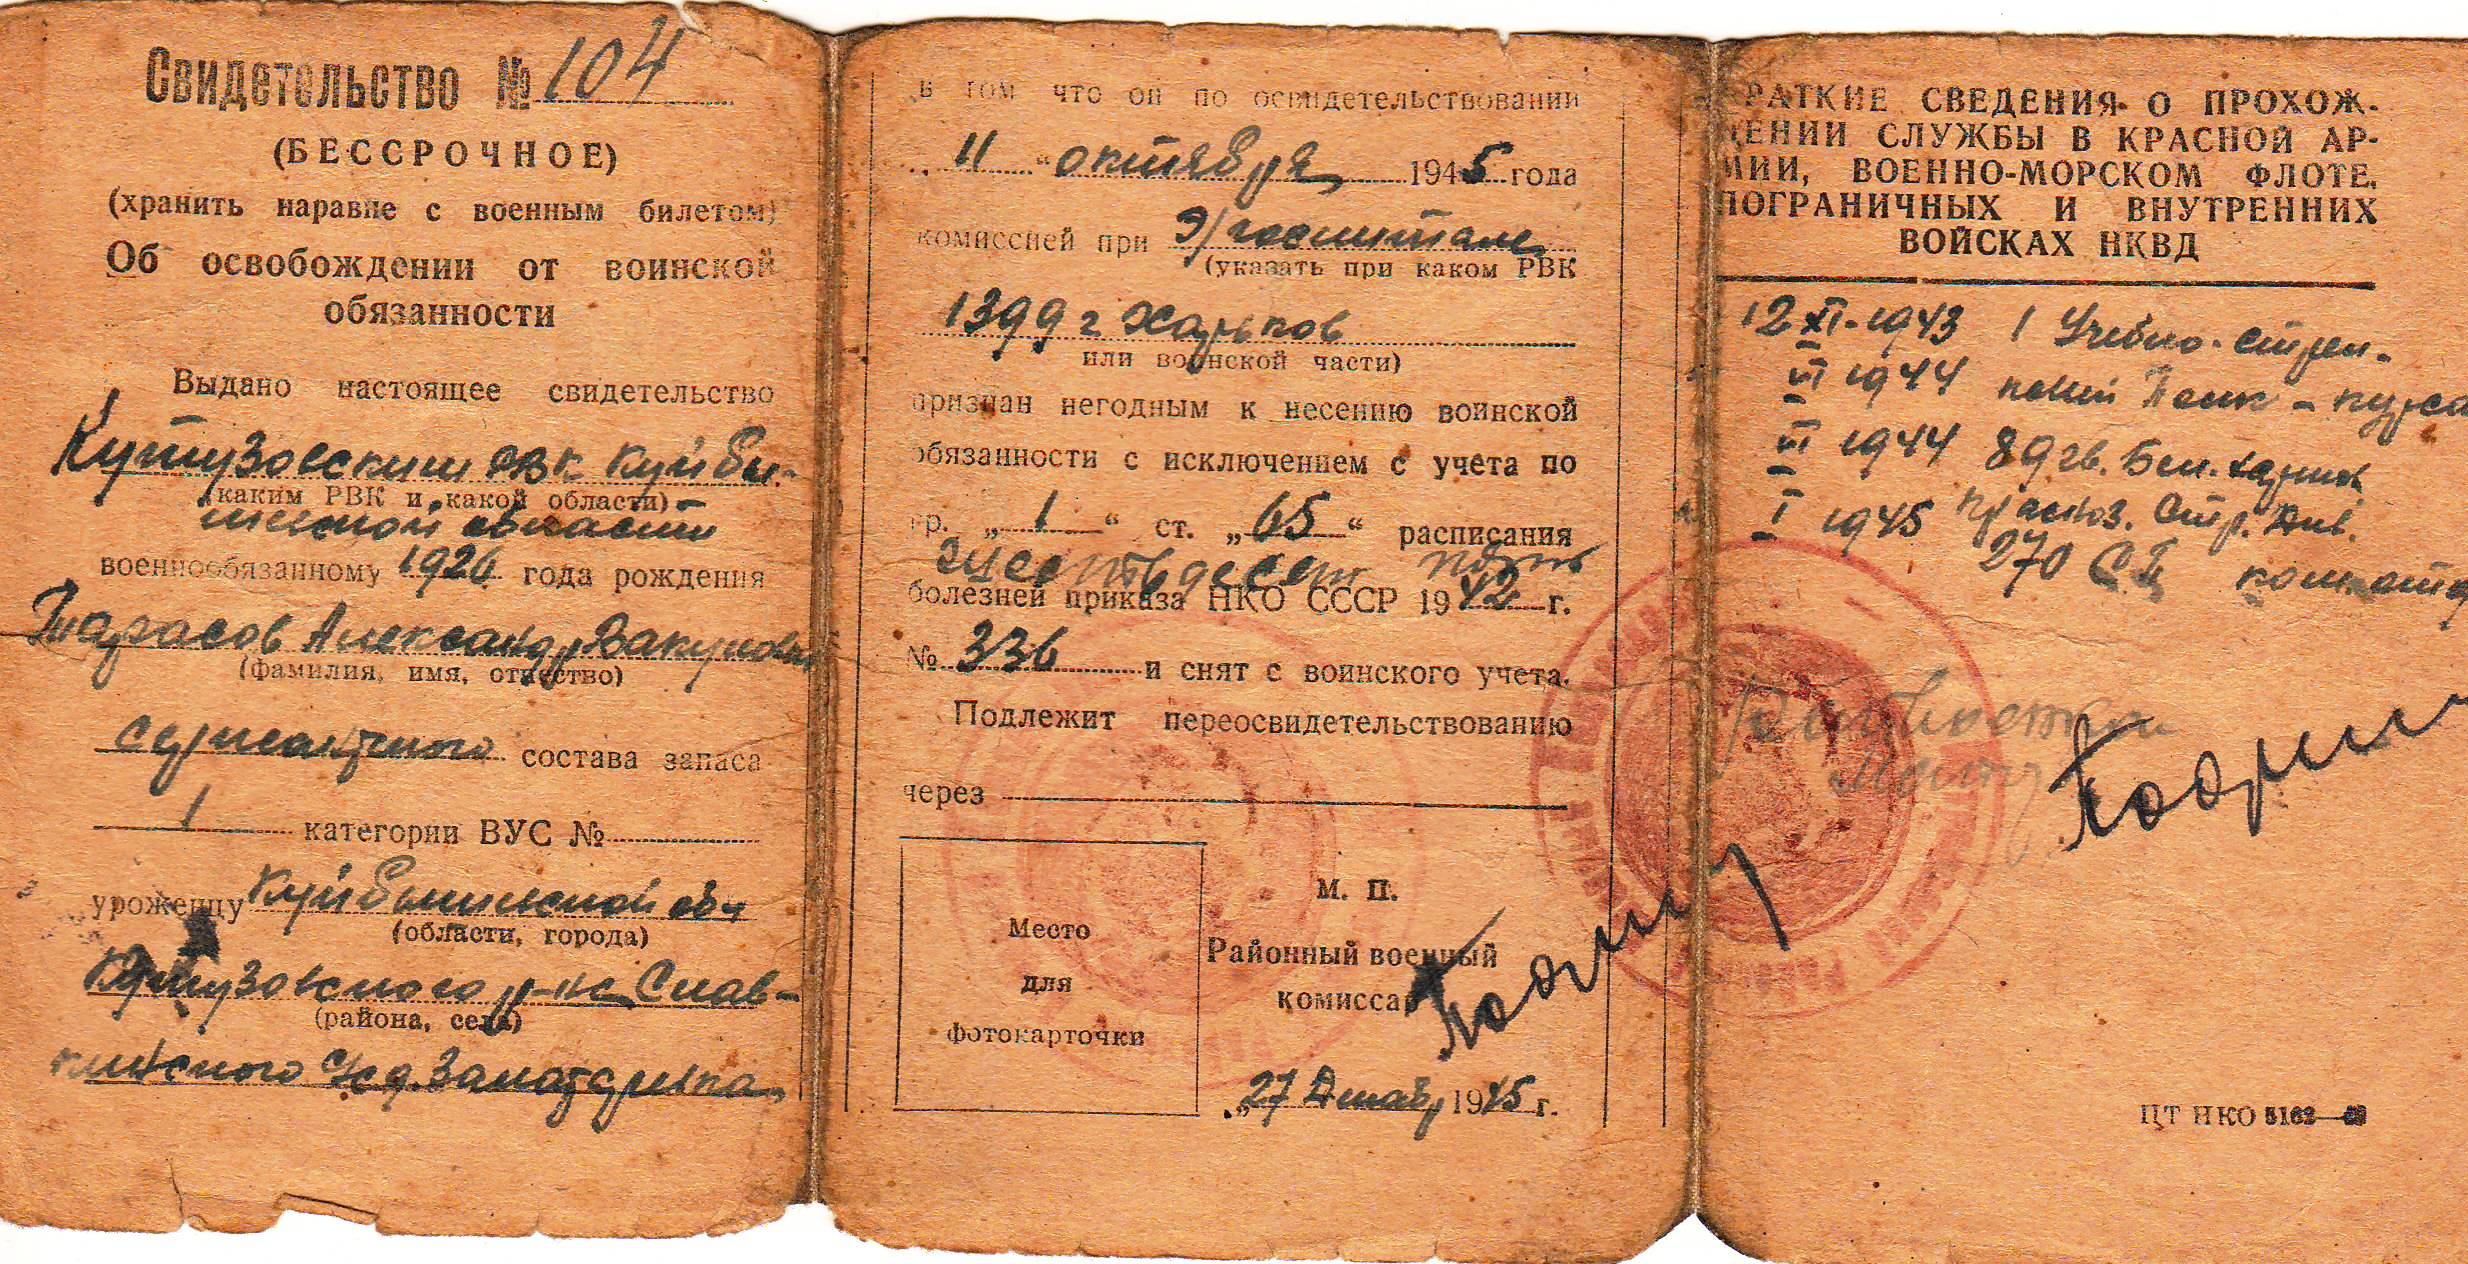 Свидетельство № 104
(БЕССРОЧНОЕ)
(хранить наравне с военным билетом)
Об освобождении от воинской
обязанности
Выдано настоящее свидетельство
Кутузовским РВК Куйбы-
(каким РВК и какой области)
шевской области
военнообязанному 1926 года рождения
Тарасов Александр
(фамилия, имя, отчество)
сержантского состава запаса
1 категории ВУС №
уроженцу Куйбышевской обл
(области, города)
Кутузовского р-на
(района, села)
в том что он по освидетельствовании
„11“ октября 1945 года
комиссией при Э/госпитале
(указать при каком РВК
1399 г Харьков
или воинской части)
признан негодным к несению воинской
обязанности с исключением с учета по
гр. „1“ ст. „65“ расписания
шестьдесят пять
болезней приказа НКО СССР 1942 г.
№ 336 и снят с воинского учета.
Подлежит переосвидетельствованию
через
Место
для
фотокарточки
М. П.
Районный военный
комиссар
„27 1945 г.
КРАТКИЕ СВЕДЕНИЯ О ПРОХОЖ-
ДЕНИИ СЛУЖБЫ В КРАСНОЙ АР-
МИИ, ВОЕННО-МОРСКОМ ФЛОТЕ,
ПОГРАНИЧНЫХ И ВНУТРЕННИХ
ВОЙСКАХ НКВД
12 XI-1943 1 Учебно-стрел-
VI 1944 ковый Полк -
VI 1944 89 гв. Бел.
I 1945 Красноз. Стр. Див.
270 С.П.
ЦТ НКО 5162